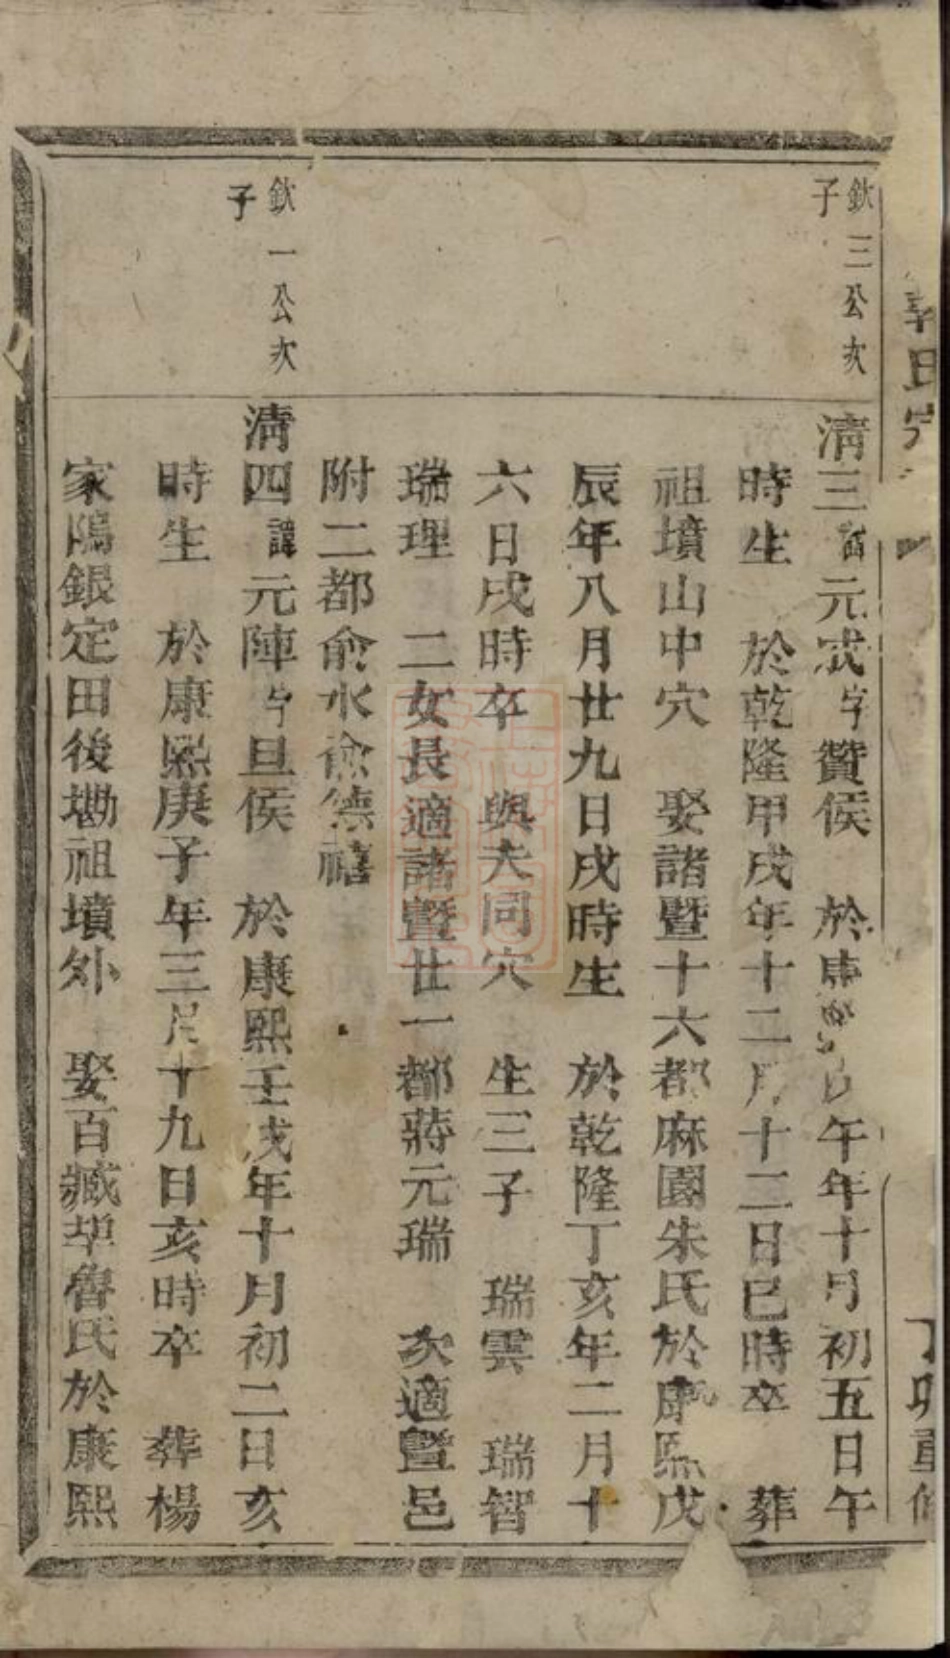 欽三公次
子
清三諱元忒字贊侯　於康熙　午年十月初五日午
時生　於乾隆甲戌年十二月十二日巳時卒　葬
祖墳山中穴　娶諸暨十六都麻園朱氏於康熙戊
辰年八月廿九日戌時生　於乾隆丁亥年二月十
六日戌時卒　與夫同穴　生三子　瑞雲　瑞智
瑞理　二女長適諸暨廿一都蔣元瑞　次適暨邑
附二都俞水　德禧
欽一公次
子
清四諱元陣字旦侯　於康熙壬戌年十月初二日亥
時生　於康熙庚子年三月十九日亥時卒　葬楊
家隖銀定田後墈祖墳外　娶百藏　魯氏於康熙